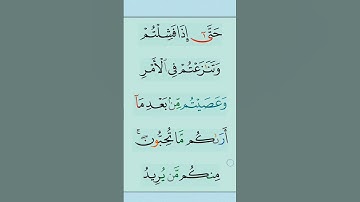 حَتَّىٰٓ إِذَا فَشِلْتُمْ
وَتَنَٰزَعْتُمْ فِى ٱلْأَمْرِ
وَعَصَيْتُم مِّنۢ بَعْدِ مَآ
أَرَىٰكُم مَّا تُحِبُّونَ ۚ
مِنكُم مَّن يُرِيدُ